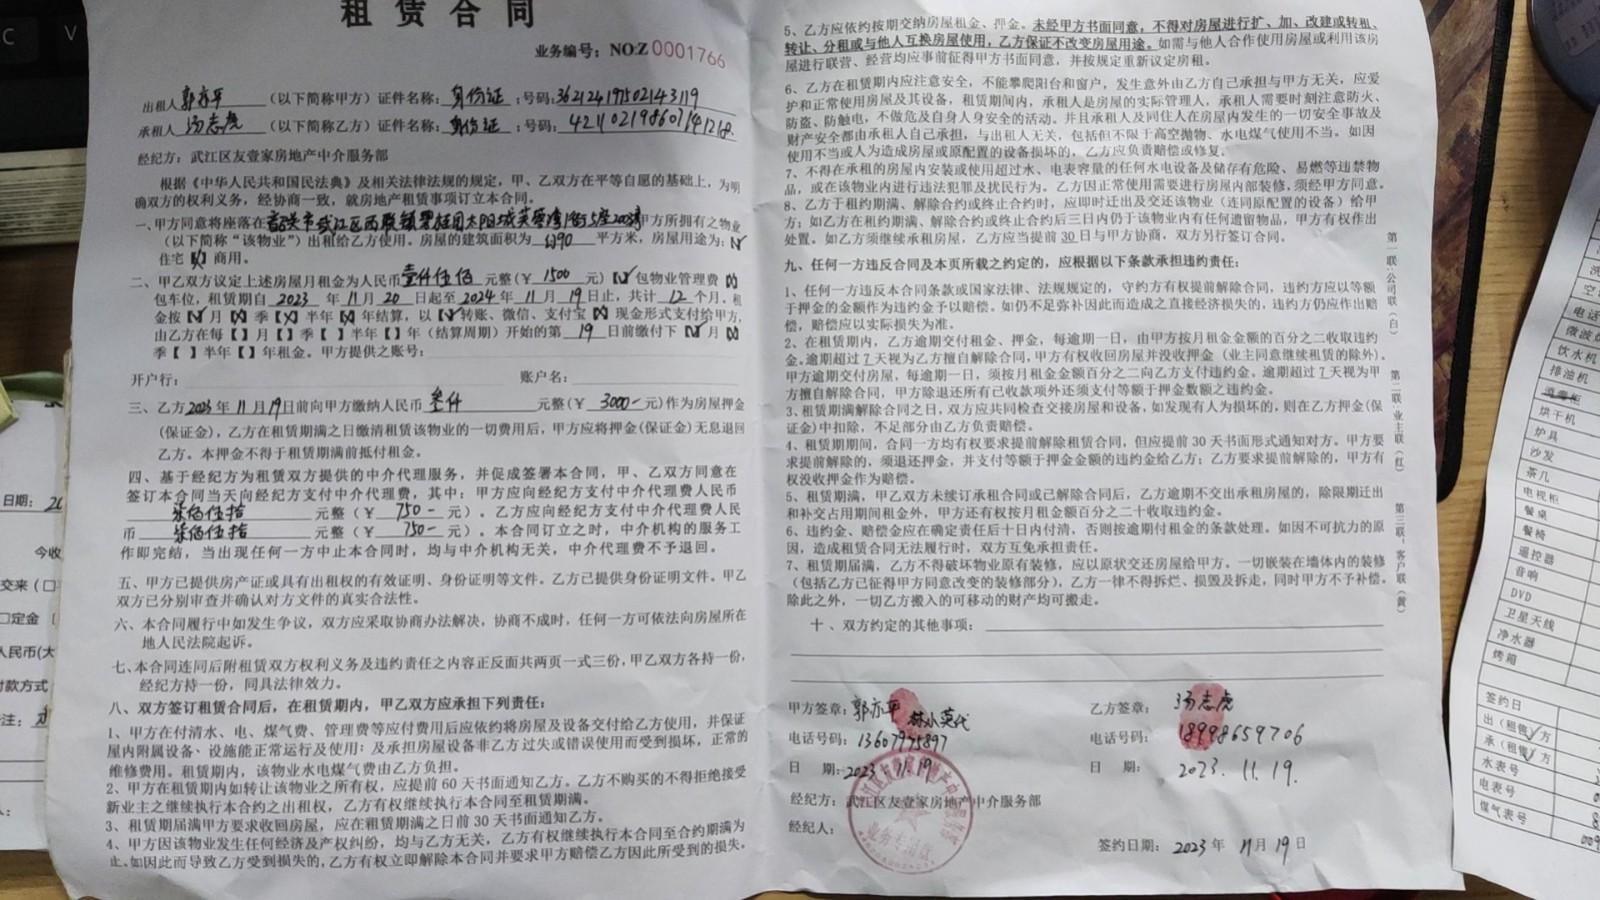 租赁合同
业务编号：NO:Z 0001766
出租人郭亦平（以下简称甲方）证件名称：身份证；号码：362124197502143119
承租人汤志虎（以下简称乙方）证件名称：身份证；号码：421102198607141218.
经纪方：武江区友壹家房地产中介服务部
根据《中华人民共和国民法典》及相关法律法规的规定，甲、乙双方在平等自愿的基础上，为明
确双方的权利义务，经协商一致，就房地产租赁事项订立本合同。
一、甲方同意将座落在韶关市武江区西联镇碧桂园太阳城芙蓉湾1街5座2003房甲方所拥有之物业
（以下简称“该物业”）出租给乙方使用。房屋的建筑面积为 约90 平方米，房屋用途为：【√】
住宅【×】商用。
二、甲乙双方议定上述房屋月租金为人民币壹仟伍佰 元整（￥ 1500 元）【√】包物业管理费【×】
包车位，租赁期自 2023 年 11 月 20 日起至 2024 年 11 月 19 日止，共计 12 个月，租
金按【√】月【×】季【×】半年【×】年结算，以【√】转账、微信、支付宝【×】现金形式支付给甲方，
由乙方在每【 】月【 】季【 】半年【 】年（结算周期）开始的第 19 日前缴付下【√】月【×】
季【 】半年【 】年租金。甲方提供之账号：
开户行： 账户名：
三、乙方2023年 11月19日前向甲方缴纳人民币 叁仟 元整（￥ 3000- 元）作为房屋押金
（保证金），乙方在租赁期满之日缴清租赁该物业的一切费用后，甲方应将押金（保证金）无息退回
乙方。本押金不得于租赁期满前抵付租金。
四、基于经纪方为租赁双方提供的中介代理服务，并促成签署本合同，甲、乙双方同意在
签订本合同当天向经纪方支付中介代理费，其中：甲方应向经纪方支付中介代理费人民币
柒佰伍拾 元整（￥ 750- 元）。乙方应向经纪方支付中介代理费人民
币 柒佰伍拾 元整（￥ 750- 元）。本合同订立之时，中介机构的服务工
作即完结，当出现任何一方中止本合同时，均与中介机构无关，中介代理费不予退回。
五、甲方已提供房产证或具有出租权的有效证明、身份证明等文件。乙方已提供身份证明文件。甲乙
双方已分别审查并确认对方文件的真实合法性。
六、本合同履行中如发生争议，双方应采取协商办法解决，协商不成时，任何一方可依法向房屋所在
地人民法院起诉。
七、本合同连同后附租赁双方权利义务及违约责任之内容正反面共两页一式三份，甲乙双方各持一份，
经纪方持一份，同具法律效力。
八、双方签订租赁合同后，在租赁期内，甲乙双方应承担下列责任：
1、甲方在付清水、电、煤气费、管理费等应付费用后应依约将房屋及设备交付给乙方使用，并保证
屋内附属设备、设施能正常运行及使用；及承担房屋设备非乙方过失或错误使用而受到损坏，正常的
维修费用。租赁期内，该物业水电煤气费由乙方负担。
2、甲方在租赁期内如转让该物业之所有权，应提前 60 天书面通知乙方。乙方不购买的不得拒绝接受
新业主之继续执行本合约之出租权，乙方有权继续执行本合同至租赁期满。
3、租赁期届满甲方要求收回房屋，应在租赁期满之日前 30 天书面通知乙方。
4、甲方因该物业发生任何经济及产权纠纷，均与乙方无关，乙方有权继续执行本合同至合约期满为
止。如因此而导致乙方受到损失的，乙方有权立即解除本合同并要求甲方赔偿乙方因此所受到的损失。
5、乙方应依约按期交纳房屋租金、押金。未经甲方书面同意，不得对房屋进行扩、加、改建或转租、
转让、分租或与他人互换房屋使用，乙方保证不改变房屋用途。如需与他人合作使用房屋或利用该房
屋进行联营、经营均应事前征得甲方书面同意，并按规定重新议定房租。
6、乙方在租赁期内应注意安全，不能攀爬阳台和窗户，发生意外由乙方自己承担与甲方无关，应爱
护和正常使用房屋及其设备，租赁期间内，承租人是房屋的实际管理人，承租人需要时刻注意防火、
防盗、防触电，不做危及自身人身安全的活动。并且承租人及同住人在房屋内发生的一切安全事故及
财产安全都由承租人自己承担，与出租人无关，包括但不限于高空抛物、水电煤气使用不当。如因
使用不当或人为造成房屋或原配置的设备损坏的，乙方应负责赔偿或修复。
7、不得在承租的房屋内安装或使用超过水、电表容量的任何水电设备及储存有危险、易燃等违禁物
品，或在该物业内进行违法犯罪及扰民行为。乙方因正常使用需要进行房屋内部装修，须经甲方同意。
8、乙方于租约期满、解除合约或终止合约时，应即时迁出及交还该物业（连同原配置的设备）给甲
方；如乙方在租约期满、解除合约或终止合约后三日内仍于该物业内有任何遗留物品，甲方有权作出
处置。如乙方须继续承租房屋，乙方应当提前 30 日与甲方协商，双方另行签订合同。
九、任何一方违反合同及本页所载之约定的，应根据以下条款承担违约责任：
1、任何一方违反本合同条款或国家法律、法规规定的，守约方有权提前解除合同，违约方应以等额
于押金的金额作为违约金予以赔偿。如仍不足弥补因此而造成之直接经济损失的，违约方仍应作出赔
偿，赔偿应以实际损失为准。
2、在租赁期内，乙方逾期交付租金、押金，每逾期一日，由甲方按月租金金额的百分之二收取违约
金。逾期超过 7 天视为乙方擅自解除合同，甲方有权收回房屋并没收押金（业主同意继续租赁的除外）。
甲方逾期交付房屋，每逾期一日，须按月租金金额百分之二向乙方支付违约金。逾期超过 7 天视为甲
方擅自解除合同，甲方除退还所有已收款项外还须支付等额于押金数额之违约金。
3、租赁期满解除合同之日，双方应共同检查交接房屋和设备，如发现有人为损坏的，则在乙方押金（保
证金）中扣除，不足部分由乙方负责赔偿。
4、租赁期期间，合同一方均有权要求提前解除租赁合同，但应提前 30 天书面形式通知对方。甲方要
求提前解除的，须退还押金，并支付等额于押金金额的违约金给乙方；乙方要求提前解除的，甲方有
权没收押金作为赔偿。
5、租赁期满，甲乙双方未续订承租合同或已解除合同后，乙方逾期不交出承租房屋的，除限期迁出
和补交占用期间租金外，甲方还有权按月租金额百分之二十收取违约金。
6、违约金、赔偿金应在确定责任后十日内付清，否则按逾期付租金的条款处理。如因不可抗力的原
因，造成租赁合同无法履行时，双方互免承担责任。
7、租赁期届满，乙方不得破坏物业原有装修，应以原状交还房屋给甲方。一切嵌装在墙体内的装修
（包括乙方已征得甲方同意改变的装修部分），乙方一律不得拆烂、损毁及拆走，同时甲方不予补偿。
除此之外，一切乙方搬入的可移动的财产均可搬走。
十、双方约定的其他事项：
甲方签章：郭亦平 林小英代
电话号码：13607975897
日 期：2023 11.19
经纪方：武江区友壹家房地产中介服务部
经纪人：
乙方签章：汤志虎
电话号码：18998659706
日 期： 2023.11.19.
签约日期：2023年 11月19日
业务专用章
第一联：公司联（白）
第二联：业主联（红）
第三联：客户联（黄）
日期：20
今收
交来（□
□定金
人民币（大
付款方式
空
电话
微波炉
饮水机
排油机
消毒柜
烘干机
炉具
沙发
茶几
电视柜
餐桌
餐椅
遥控器
音响
DVD
卫星天线
净水器
烤箱
签约日
出（租售）方
承（租售）方
水表号
电表号
煤气表号
C
V